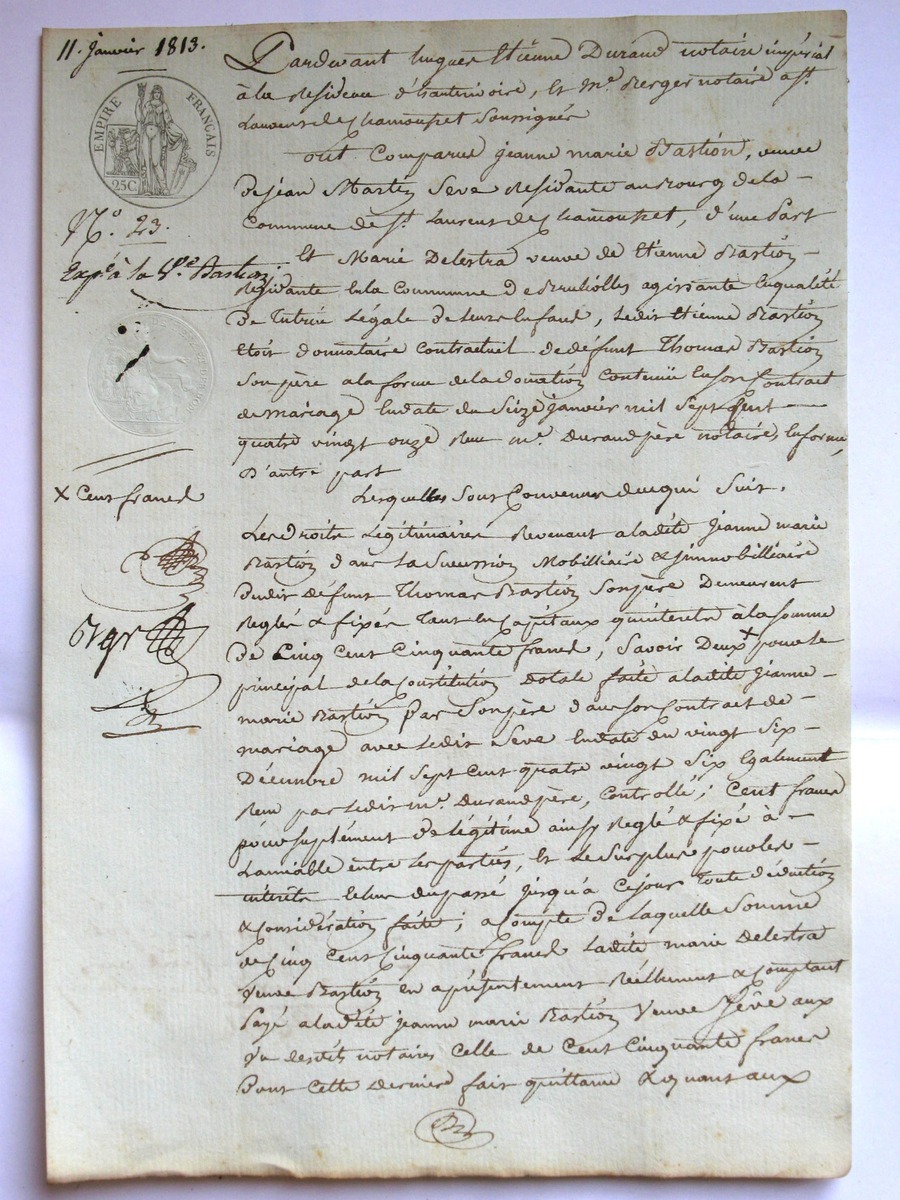 11. janvier 1813.
EMPIRE FRANÇAIS
25C.
N.º 23.
Exp.é à la V.e Bastion.
x Cent francs
Pardevant hugues Etienne Durand notaire impérial
à la Residence d'hauterivoire, et m.e Berger notaire a S.t
Laurent de Chamousset Soussignés
ont Comparus jeanne marie Bastion, veuve
de jean Martin Seve Residante au Bourg de la
Commune de S.t Laurent de Chamousset, d'une part
Et Marie Delestra veuve de Etienne Bastion
Residante en la Commune de Brulliolles agissante en qualité
de Tutrice Légale de leurs enfans, ledit Etienne Bastion
étoit donnataire Contractuel de défunt Thomas Bastion
Son père a la forme de la donation Contenuë en son Contract
de mariage en date du Seize janvier mil Sept Cent
quatre vingt onze Reçu m.e Durand père notaire, en forme,
D'autre part
Lesquelles Sont Convenues de ce qui Suit.
Les droits Légitimaires Revenant a ladite jeanne marie
Bastion dans la Succession Mobilliaire & jmmobilliaire
dudit défunt Thomas Bastion Son père Demeurent
Reglés & fixés Tant en Capitaux qu'interets à la Somme
de Cinq Cent Cinquante francs, Savoir Deux x pour le
principal de la Constitution dotale faite a ladite jeanne
marie Bastion par Son père dans Son Contract de
mariage avec ledit Seve en date du vingt Six
Décembre mil Sept Cent quatre vingt Six Egalement
Reçu par ledit m.e Durand père, Controllé; Cent francs
pour Suplément de légitime ainsy Reglé & fixé à
L'amiable entre les parties, et le Surplus pour les
interets échus du passé jusqu'à ce jour Toute déduction
& Considération faite; a Compte de Laquelle Somme
de Cinq Cent Cinquante francs Ladite marie Delestra
Veuve Bastion en a présentement Réellement & Comptant
Payé a ladite jeanne marie Bastion Veuve Sève aux
vu desdits notaires Celle de Cent Cinquante francs
Dont Cette derniere fait quittance & quant aux